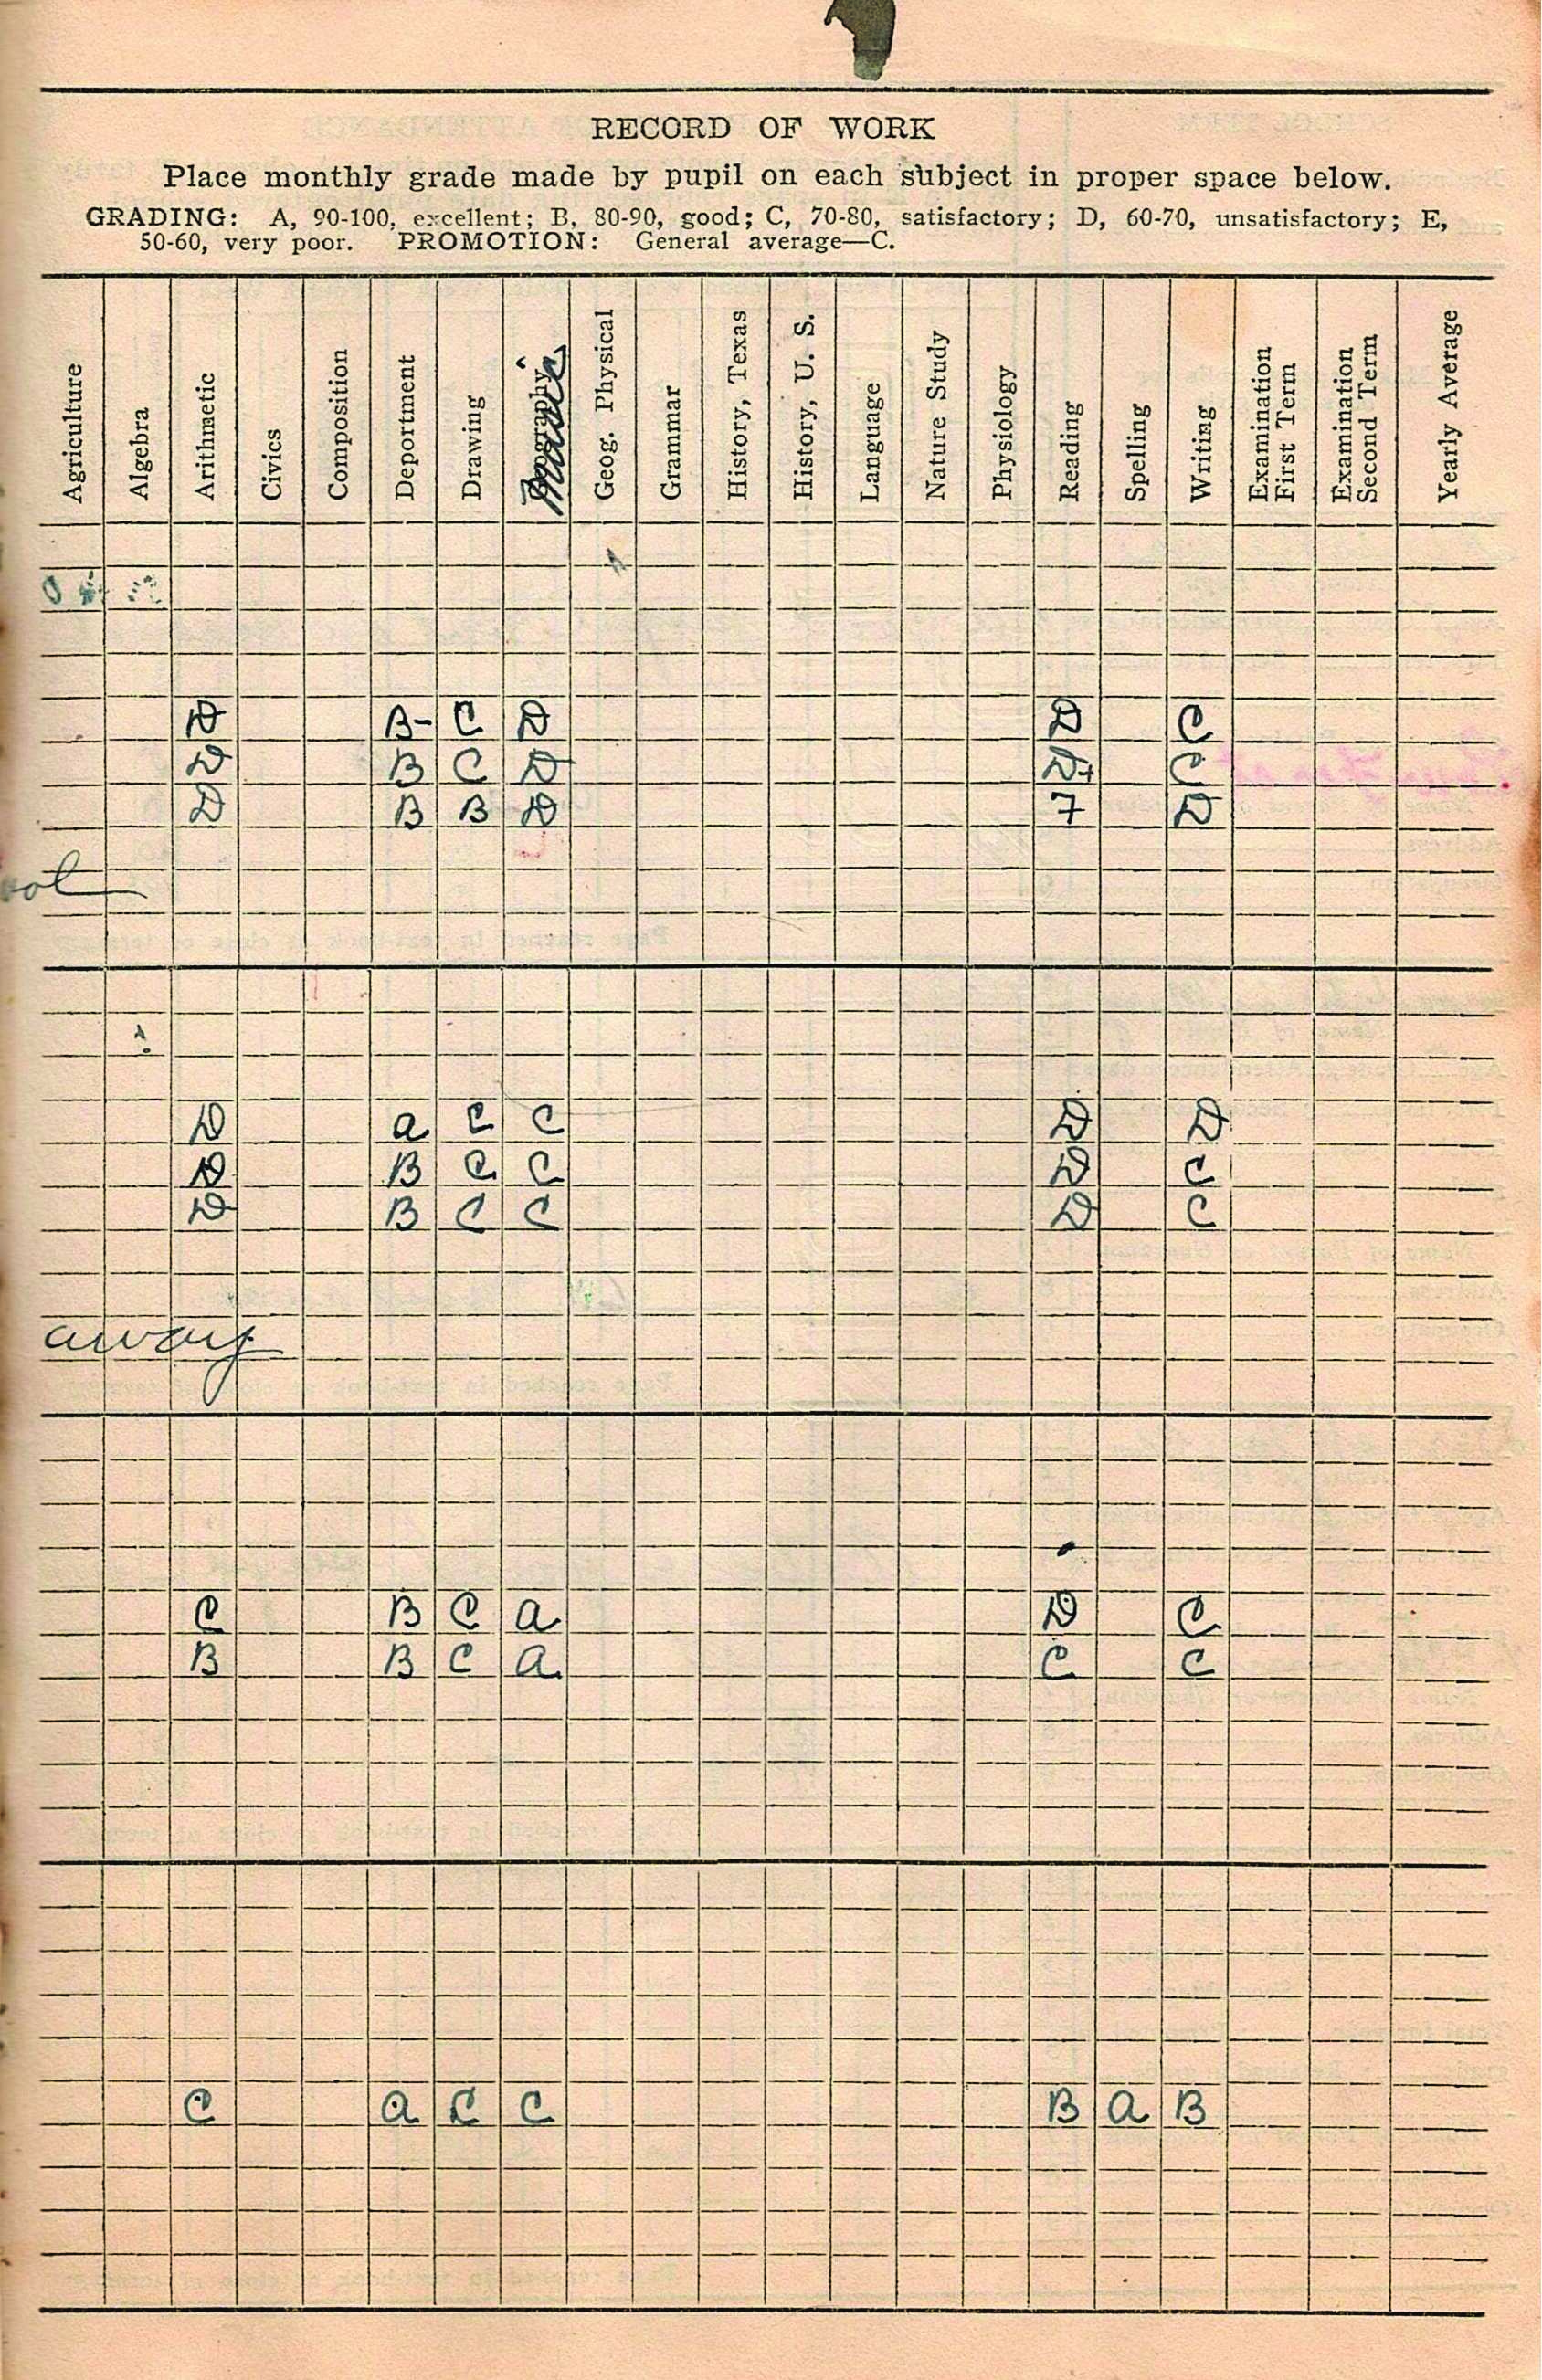 RECORD OF WORK
Place monthly grade made by pupil on each subject in proper space below.
GRADING: A, 90-100, excellent; B, 80-90, good; C, 70-80, satisfactory; D, 60-70, unsatisfactory; E,
50-60, very poor. PROMOTION: General average—C.
Agriculture
Algebra
Arithmetic
Civics
Composition
Deportment
Drawing
Music
Geog. Physical
Grammar
History, Texas
History, U. S.
Language
Nature Study
Physiology
Reading
Spelling
Writing
Examination
First Term
Examination
Second Term
Yearly Average
D B- C D D C
D B C D D+ C
D B B D 7 D
D a C C D D
D B C C D C
D B C C D C
away
C B C a D C
B B C a C C
C a C C B a B